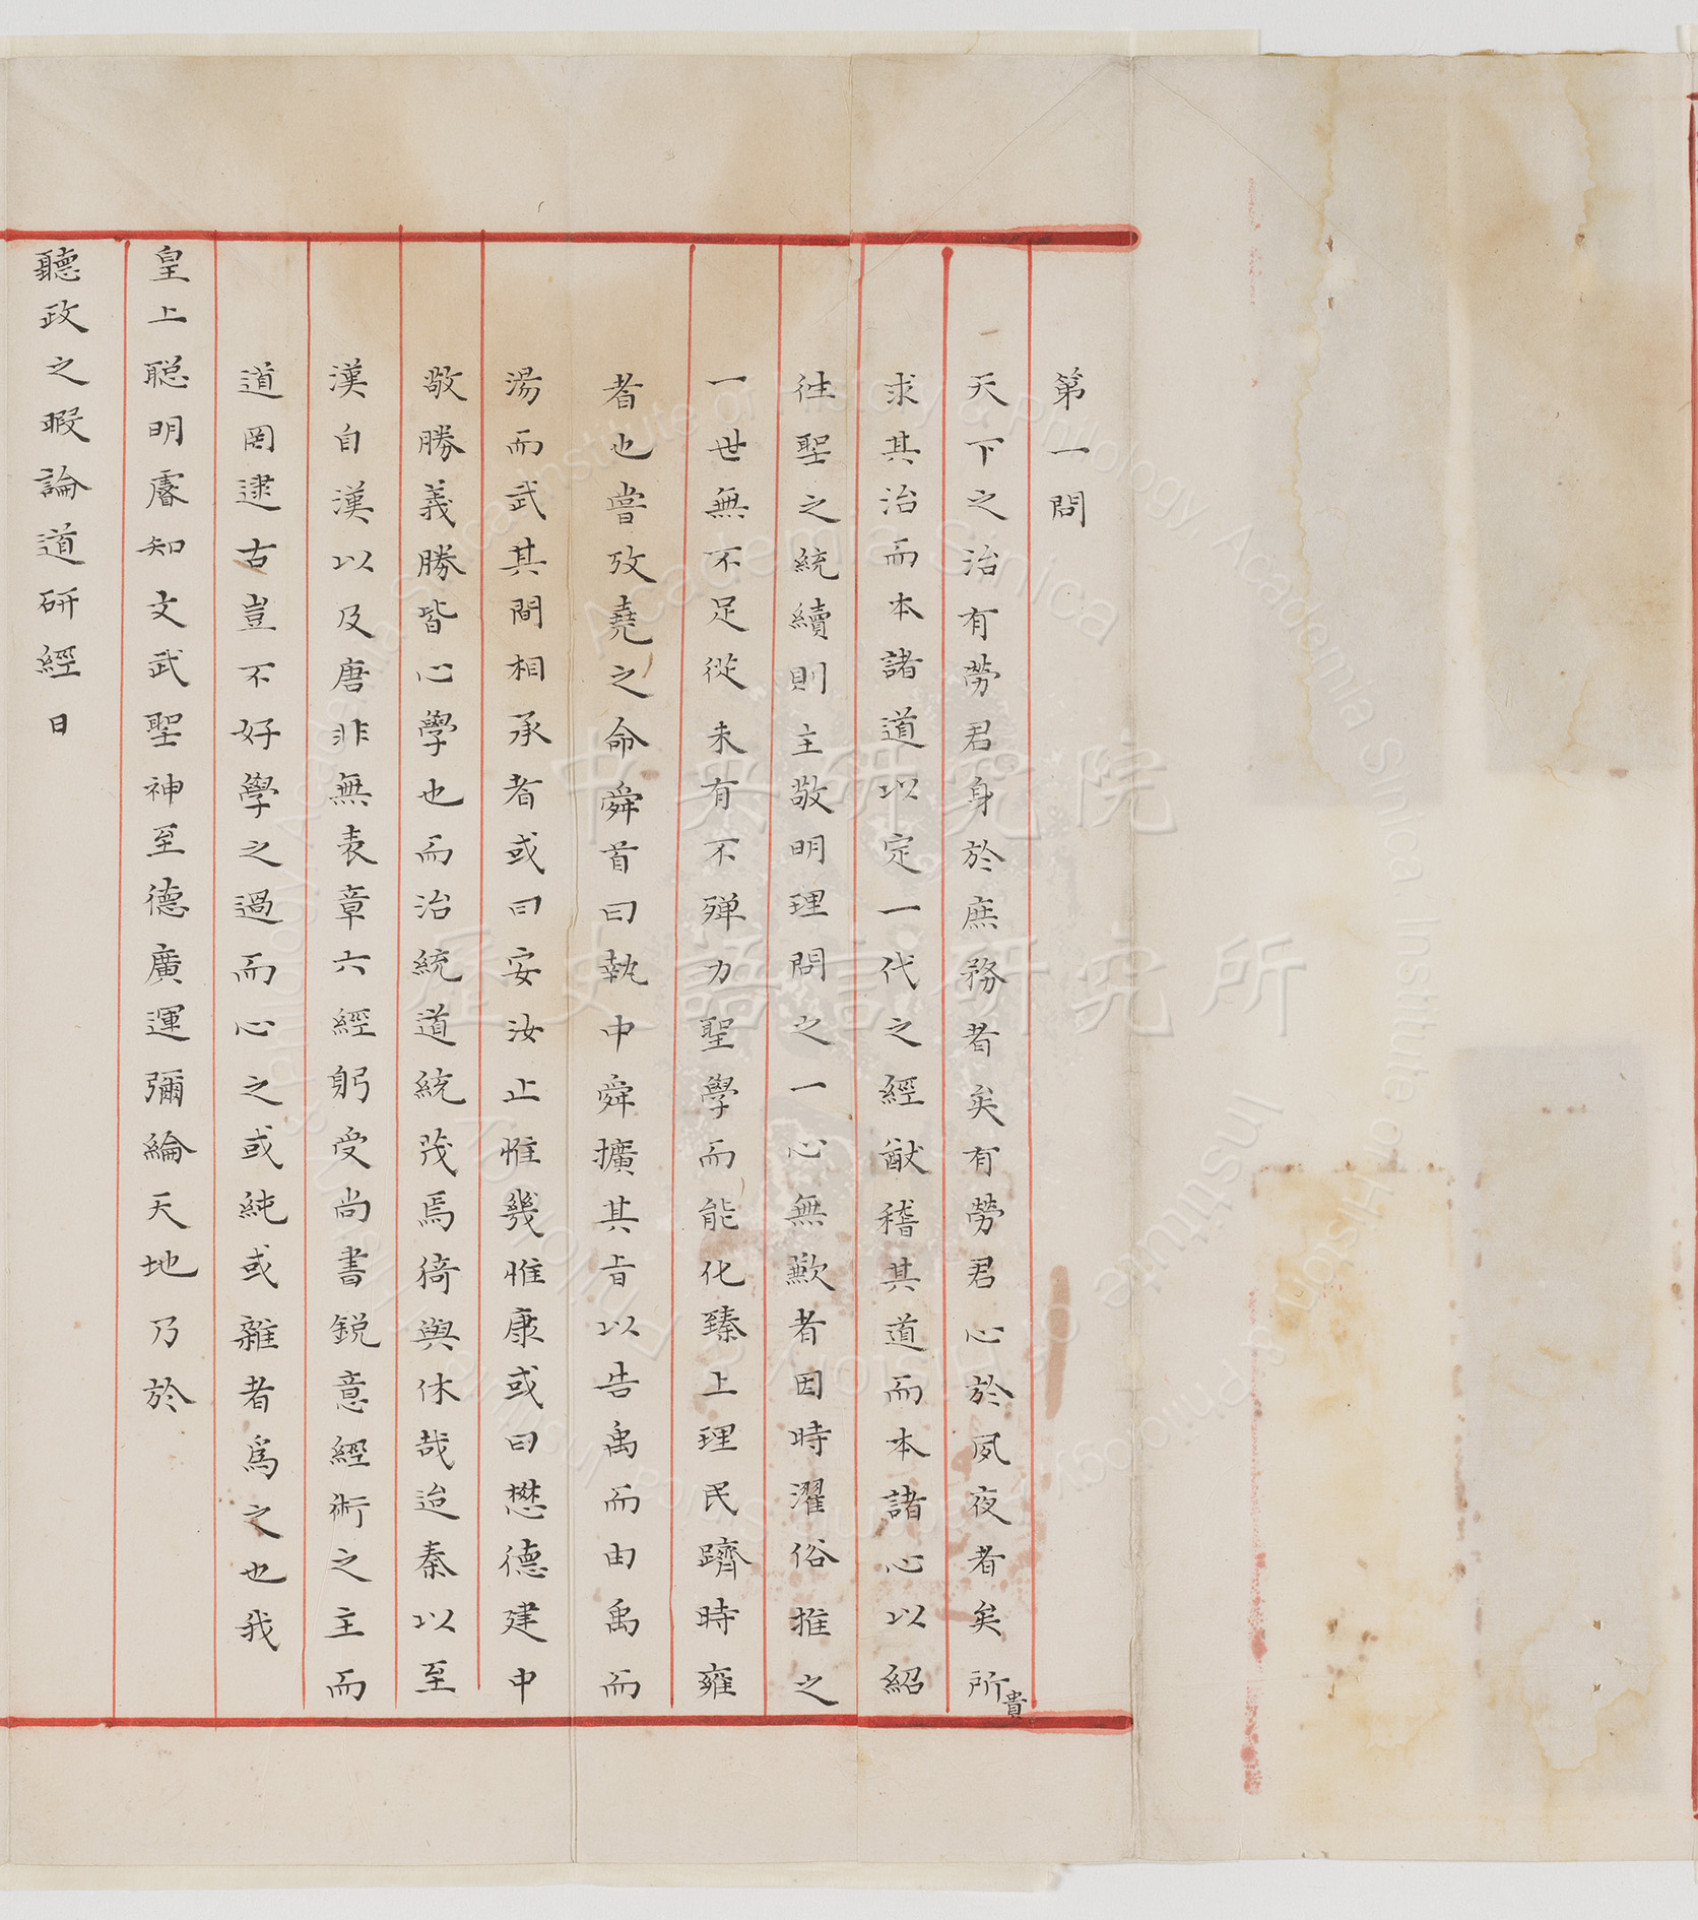 第一問
天下之治有勞君身於庶務者矣有勞君心於夙夜者矣所貴
求其治而本諸道以定一代之經猷稽其道而本諸心以紹
徃聖之統續則主敬明理問之一心無歉者因時濯俗推之
一世無不足從未有不殫力聖學而能化臻上理民躋時雍
者也甞攷堯之命舜首曰執中舜擴其旨以告禹而由禹而
湯而武其間相承者或曰安汝止惟幾惟康或曰懋德建中
敬勝義勝皆心學也而治統道統茂焉猗與休哉迨秦以至
漢自漢以及唐非無表章六經躬受尚書銳意經術之主而
道罔逮古豈不好學之過而心之或純或雜者爲之也我
皇上聰明睿知文武聖神至德廣運彌綸天地乃於
聽政之暇論道研經日
中央研究院
歷史語言研究所
Institute of History & Philology, Academia Sinica